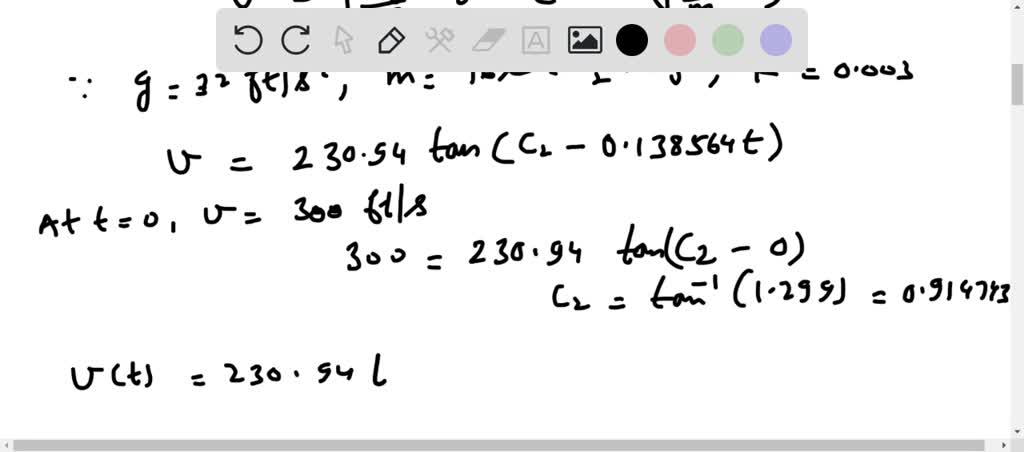 ∵ g = 32 ft/s², m = = 0.003
v = 230.94 tan(C₂ − 0.138564t)
At t=0, v = 300 ft/s
300 = 230.94 tan(C₂ − 0)
C₂ = tan⁻¹(1.299) = 0.914743
v(t) = 230.94 (